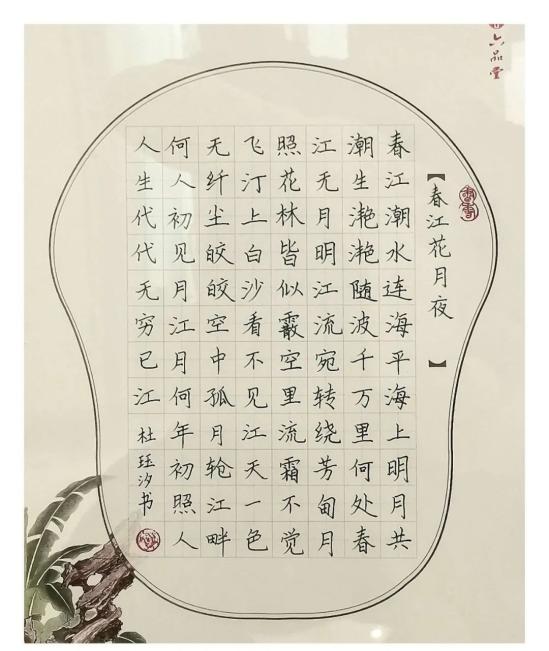 六品堂
【春江花月夜】
春江潮水连海平海上明月共
潮生滟滟随波千万里何处春
江无月明江流宛转绕芳甸月
照花林皆似霰空里流霜不觉
飞汀上白沙看不见江天一色
无纤尘皎皎空中孤月轮江畔
何人初见月江月何年初照人
人生代代无穷已江
杜珏汐书